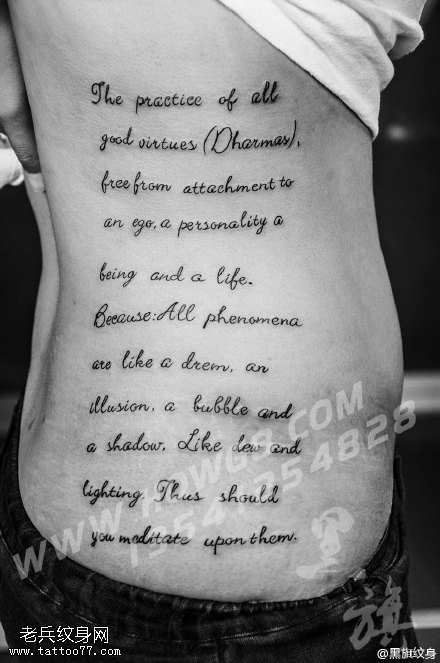 The practice of all
good virtues (Dharmas),
free from attachment to
an ego, a personality a
being and a life.
Because: All phenomena
are like a drem, an
illusion, a bubble and
a shadow. Like dew and
lighting. Thus should
you meditate upon them.
黑旗
老兵纹身网
www.tattoo77.com
@黑旗纹身